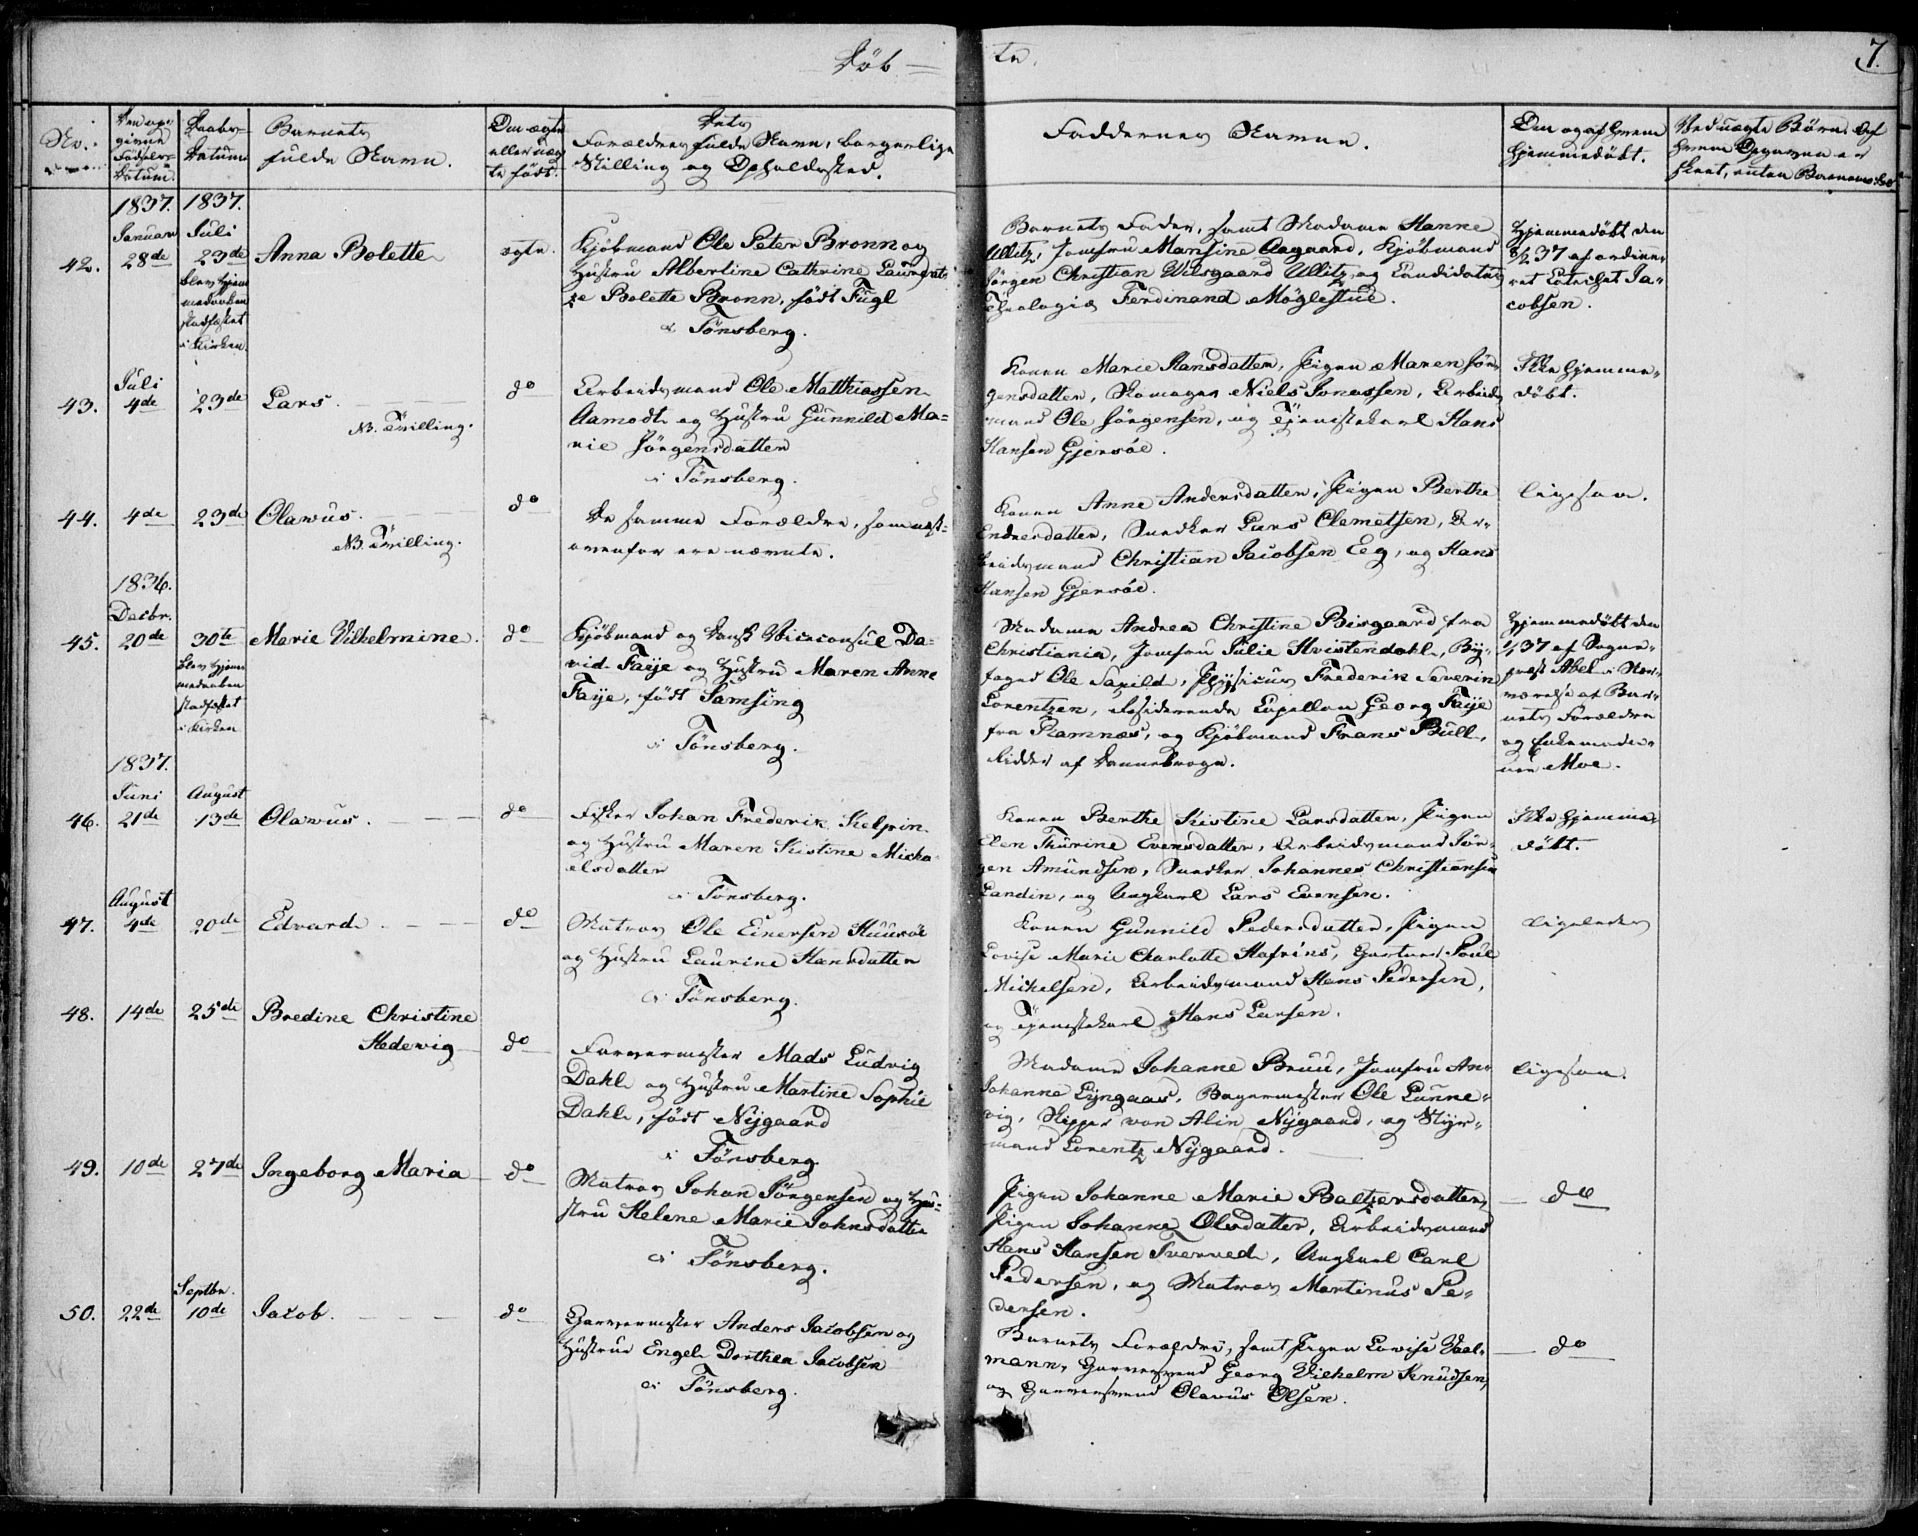 Døb-
te.
7.
No.
Den opgivne
Fødsels-
Datum.
Daabs-
Datum
Barnets
fulde Navn.
Om ægte
eller uæg-
te født.
Dets
Forældres fulde Navn, borgerlige
Stilling og Opholdssted.
Faddernes Navne.
Om og af hvem
hjemmedøbt.
Ved uægte Børn. Af
hvem Opgaven er
skeet, enten
1837. 1837.
Januar Juli
42. 28de 23de Anna Bolette ægte.
blev hjem-
medaaben
stadfæstet
i Kirken.
Kjøbmand Ole Peter Bronn og
Hustru Albertine Cathrine
Bolette Bronn, født Fugl
i Tönsberg.
Barnets Fader, samt Madame Hanne
Ullitz, Jomfru Mansine Aagaard, Kjøbmand
Jörgen Christian Wilsgaard Ullitz og Candidatus
Theologiæ Ferdinand Möglestue.
Hjemmedøbt den
37 af ordine-
ret Catechet Ja-
cobsen.
Juli
43. 4de 23de Lars. do
NB. Tvilling.
Arbeidsmand Ole Matthiassen
Aamodt og Hustru Gunnild Ma-
rie Jörgensdatter
i Tönsberg.
Konen Marie Hansdatter, Pigen Maren Jör-
gensdatter, Skomager Niels Jonassen, Arbeids-
mand Ole Jörgensen, og Tjenestekarl Hans
Hansen Gjersöe.
Ikke hjemme-
døbt.
44. 4de 23de Olavus. do
NB. Tvilling.
De samme Forældre, som næst-
ovenfor ere nævnte.
Konen Anne Andersdatter, Pigen Berthe
Endresdatter, Snedker Lars Clemetsen, Ar-
beidsmand Christian Jacobsen Eeg, og Hans
Hansen Gjersöe.
ligesaa.
1836.
Decbr.
45. 20de 30te Marie Vilhelmine. do
blev hjem-
medaaben
stadfæstet
i Kirken
Kjøbmand og Dansk Viceconsul Da-
vid Faÿe og Hustru Maren Anne
Faÿe, født Samsing
i Tönsberg.
Madame Andrea Christine Bisgaard fra
Christiania, Jomfru Julie Hvistendahl, By-
foged Ole Saxild, Physicus Frederik Severin
Lorentzen, residerende Capellan Georg Faÿe
fra Ramnæs, og Kjøbmand Frans Bull,
Ridder af Dannebroge.
Hjemmedøbt den
37 af Sogne-
præst Abel i Nær-
værelse af Bar-
nets Forældre
og
Moe.
1837.
Juni August
46. 21de 13de Olavus. do
Fisker Johan Frederik Kelprin
og Hustru Maren Kistine Micha-
elsdatter
i Tönsberg.
Konen Berthe Kistine Larsdatter, Pigen
Elen Thurine Evensdatter, Arbeidsmand Jör-
gen Amundsen, Snedker Johannes Christiansen
Landin, og Ungkarl Lars Evensen.
Ikke hjemme-
døbt.
August
47. 4de 20de Edvard. do
Matros Ole Einersen Huusöe
og Hustru Laurine Hansdatter
i Tönsberg.
Konen Gunnild Pedersdatter, Pigen
Lovise Marie Charlotte Hafrins, Gartner Poul
Michelsen, Arbeidsmand Hans Pedersen,
og Tjenestekarl Hans Larsen.
ligeledes
48. 14de 25de Bredine Christine
Hedevig do
Farvermester Mads Ludvig
Dahl og Hustru Martine Sophie
Dahl, født Nÿgaard
i Tönsberg
Madame Johanne Bruu, Jomfru An-
Johanne Lÿngaas, Bagermester Ole Lunne-
vig, Skipper von Alin Nÿgaard, og Styr-
mand Lorentz Nÿgaard.
ligesaa.
49. 10de 27de Ingeborg Maria do
Matros Johan Jörgensen og Hu-
stru Helene Marie Johnsdatter
i Tönsberg.
Pigen Johanne Marie Baltzersdatter,
Pigen Johanne Olsdatter, Arbeidsmand
Hans Hansen Tverved, Ungkarl Carl
Pedersen, og Matros Martinus Pe-
dersen.
do
Septbr.
50. 22de 10de Jacob. do
Garvermester Anders Jacobsen og
Hustrue Engel Dorthea Jacobsen
i Tönsberg.
Barnets Forældre, samt Pigen Lovise Vaal-
mann, Garversvend Georg Vilhelm Knudsen,
og Garversvend Olavus Olsen.
do